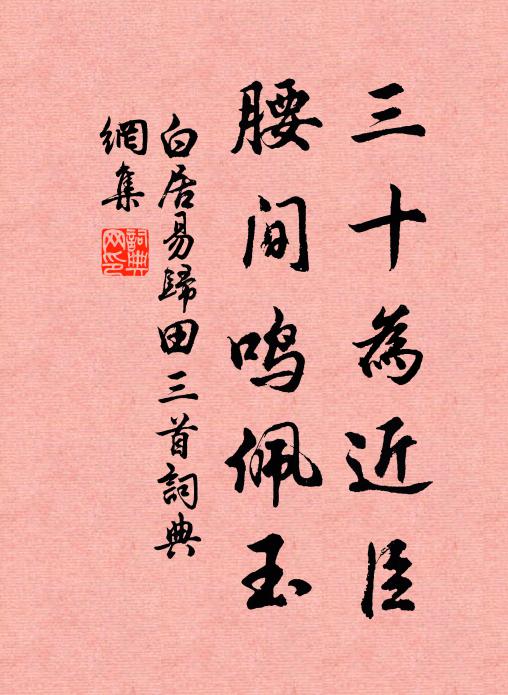 三十為近臣
腰間鳴佩玉
白居易歸田三首詞典
網集
詞典
网印